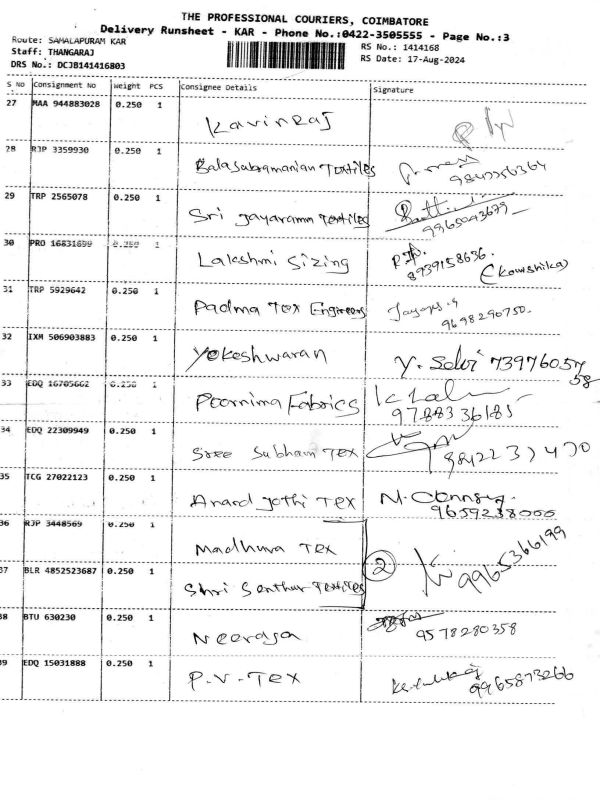 THE PROFESSIONAL COURIERS, COIMBATORE
Delivery Runsheet - KAR - Phone No.:0422-3505555 - Page No.:3
Route: SAMALAPURAM KAR
RS No.: 1414168
Staff: THANGARAJ
RS Date: 17-Aug-2024
DRS No.: DCJB141416803
S No Consignment No Weight PCS Consignee Details Signature
27 MAA 944883028 0.250 1 Kavinraj
28 RJP 3359930 0.250 1 Balasubramanian Textiles
29 TRP 2565078 0.250 1 Sri Jayaramm Textiles 9965043679
30 PRO 16831699 0.250 1 Lakshmi Sizing 8939158636. (Kowshika)
31 TRP 5929642 0.250 1 Padma Tex Engineers 9698290750.
32 IXM 506903883 0.250 1 Yokeshwaran Y. Selvi 7397605758
33 EDQ 16705662 0.250 1 Poornima Fabrics 9788336185
34 EDQ 22309949 0.250 1 Sree Subham Tex
35 TCG 27022123 0.250 1 Anand Jothi Tex 9659238000
36 RJP 3448569 0.250 1 Madhuva Tex
37 BLR 4852523687 0.250 1 Shri Senthur Textiles 2 9965366199
38 BTU 630230 0.250 1 Neeraja 9578280358
39 EDQ 15031888 0.250 1 P.V-Tex 9965873266